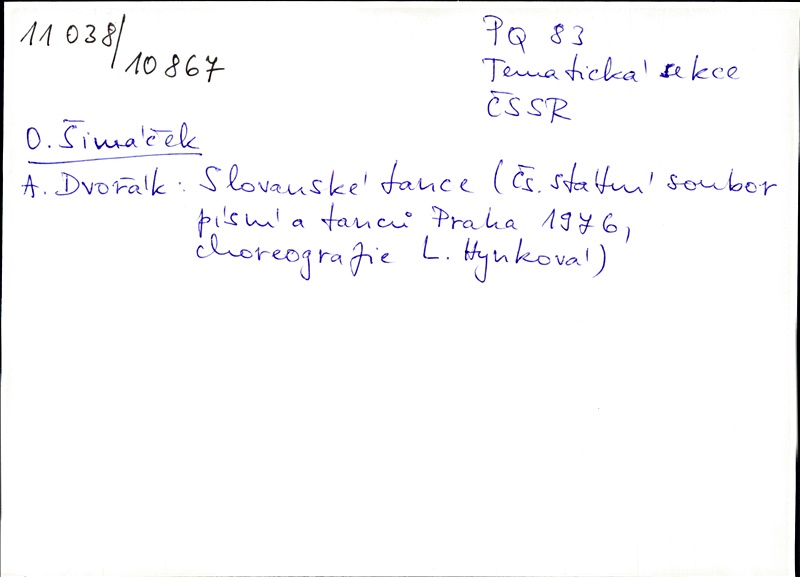 11 038/10 867
PQ 83
Tematická sekce
ČSSR
O. Šimáček
A. Dvořák: Slovanské tance (čs. státní soubor
písní a tanců Praha 1976,
choreografie L. Hynková)